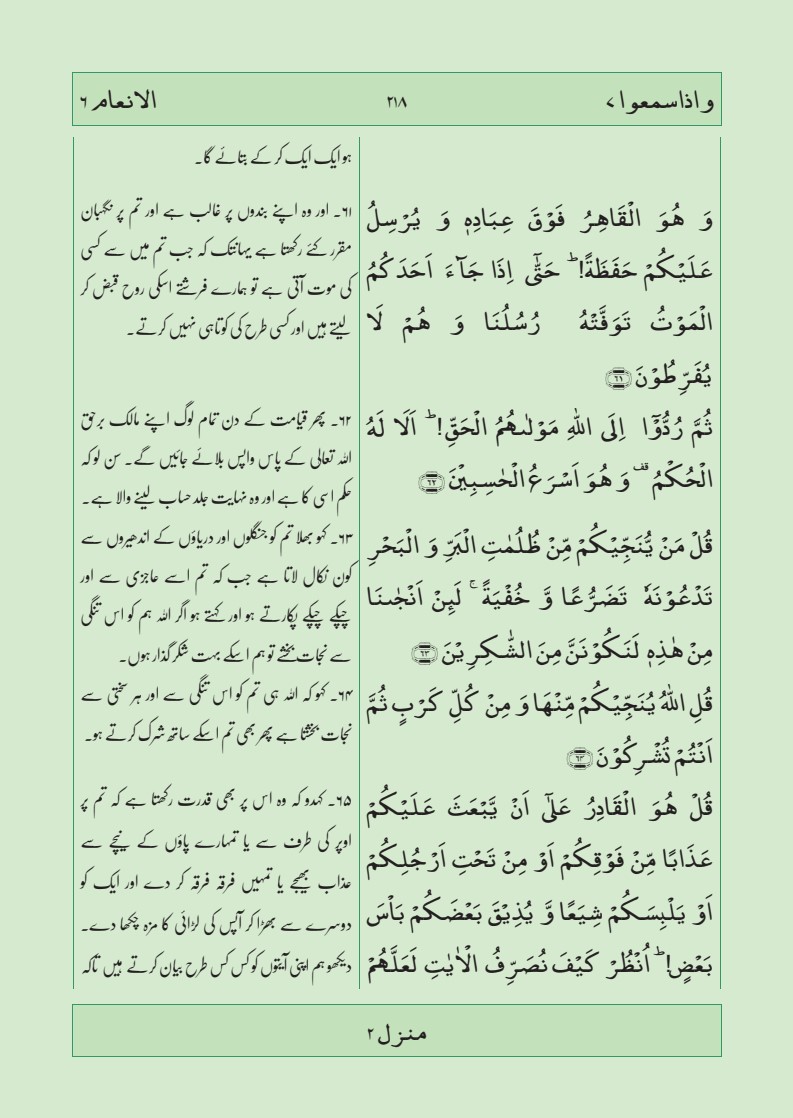 واذاسمعوا ۷
۲۱۸
الانعام ۶
وَ هُوَ الْقَاهِرُ فَوْقَ عِبَادِهٖ وَ يُرْسِلُ
عَلَيْكُمْ حَفَظَةً ؕ حَتّٰۤى اِذَا جَآءَ اَحَدَكُمُ
الْمَوْتُ تَوَفَّتْهُ رُسُلُنَا وَ هُمْ لَا
يُفَرِّطُوْنَ ﴿۶۱﴾
ثُمَّ رُدُّوْۤا اِلَى اللّٰهِ مَوْلٰىهُمُ الْحَقِّ ؕ اَلَا لَهُ
الْحُكْمُ ۟ وَ هُوَ اَسْرَعُ الْحٰسِبِيْنَ ﴿۶۲﴾
قُلْ مَنْ يُّنَجِّيْكُمْ مِّنْ ظُلُمٰتِ الْبَرِّ وَ الْبَحْرِ
تَدْعُوْنَهٗ تَضَرُّعًا وَّ خُفْيَةً ۚ لَىِٕنْ اَنْجٰىنَا
مِنْ هٰذِهٖ لَنَكُوْنَنَّ مِنَ الشّٰكِرِيْنَ ﴿۶۳﴾
قُلِ اللّٰهُ يُنَجِّيْكُمْ مِّنْهَا وَ مِنْ كُلِّ كَرْبٍ ثُمَّ
اَنْتُمْ تُشْرِكُوْنَ ﴿۶۴﴾
قُلْ هُوَ الْقَادِرُ عَلٰۤى اَنْ يَّبْعَثَ عَلَيْكُمْ
عَذَابًا مِّنْ فَوْقِكُمْ اَوْ مِنْ تَحْتِ اَرْجُلِكُمْ
اَوْ يَلْبِسَكُمْ شِيَعًا وَّ يُذِيْقَ بَعْضَكُمْ بَاْسَ
بَعْضٍ ؕ اُنْظُرْ كَيْفَ نُصَرِّفُ الْاٰيٰتِ لَعَلَّهُمْ
ہو ایک ایک کر کے بتائے گا۔
۶۱۔ اور وہ اپنے بندوں پر غالب ہے اور تم پر نگہبان
مقرر کئے رکھتا ہے یہانتک کہ جب تم میں سے کسی
کی موت آتی ہے تو ہمارے فرشتے اسکی روح قبض کر
لیتے ہیں اور کسی طرح کی کوتاہی نہیں کرتے۔
۶۲۔ پھر قیامت کے دن تمام لوگ اپنے مالک برحق
اللہ تعالی کے پاس واپس بلائے جائیں گے۔ سن لو کہ
حکم اسی کا ہے اور وہ نہایت جلد حساب لینے والا ہے۔
۶۳۔ کہو بھلا تم کو جنگلوں اور دریاؤں کے اندھیروں سے
کون نکال لاتا ہے جب کہ تم اسے عاجزی سے اور
چپکے چپکے پکارتے ہو اور کہتے ہو اگر اللہ ہم کو اس تنگی
سے نجات بخشے تو ہم اسکے بہت شکر گذار ہوں۔
۶۴۔ کہو کہ اللہ ہی تم کو اس تنگی سے اور ہر سختی سے
نجات بخشتا ہے پھر بھی تم اسکے ساتھ شرک کرتے ہو۔
۶۵۔ کہدو کہ وہ اس پر بھی قدرت رکھتا ہے کہ تم پر
اوپر کی طرف سے یا تمہارے پاؤں کے نیچے سے
عذاب بھیجے یا تمہیں فرقہ فرقہ کر دے اور ایک کو
دوسرے سے بھڑا کر آپس کی لڑائی کا مزہ چکھا دے۔
دیکھو ہم اپنی آیتوں کو کس کس طرح بیان کرتے ہیں تاکہ
منزل ۲